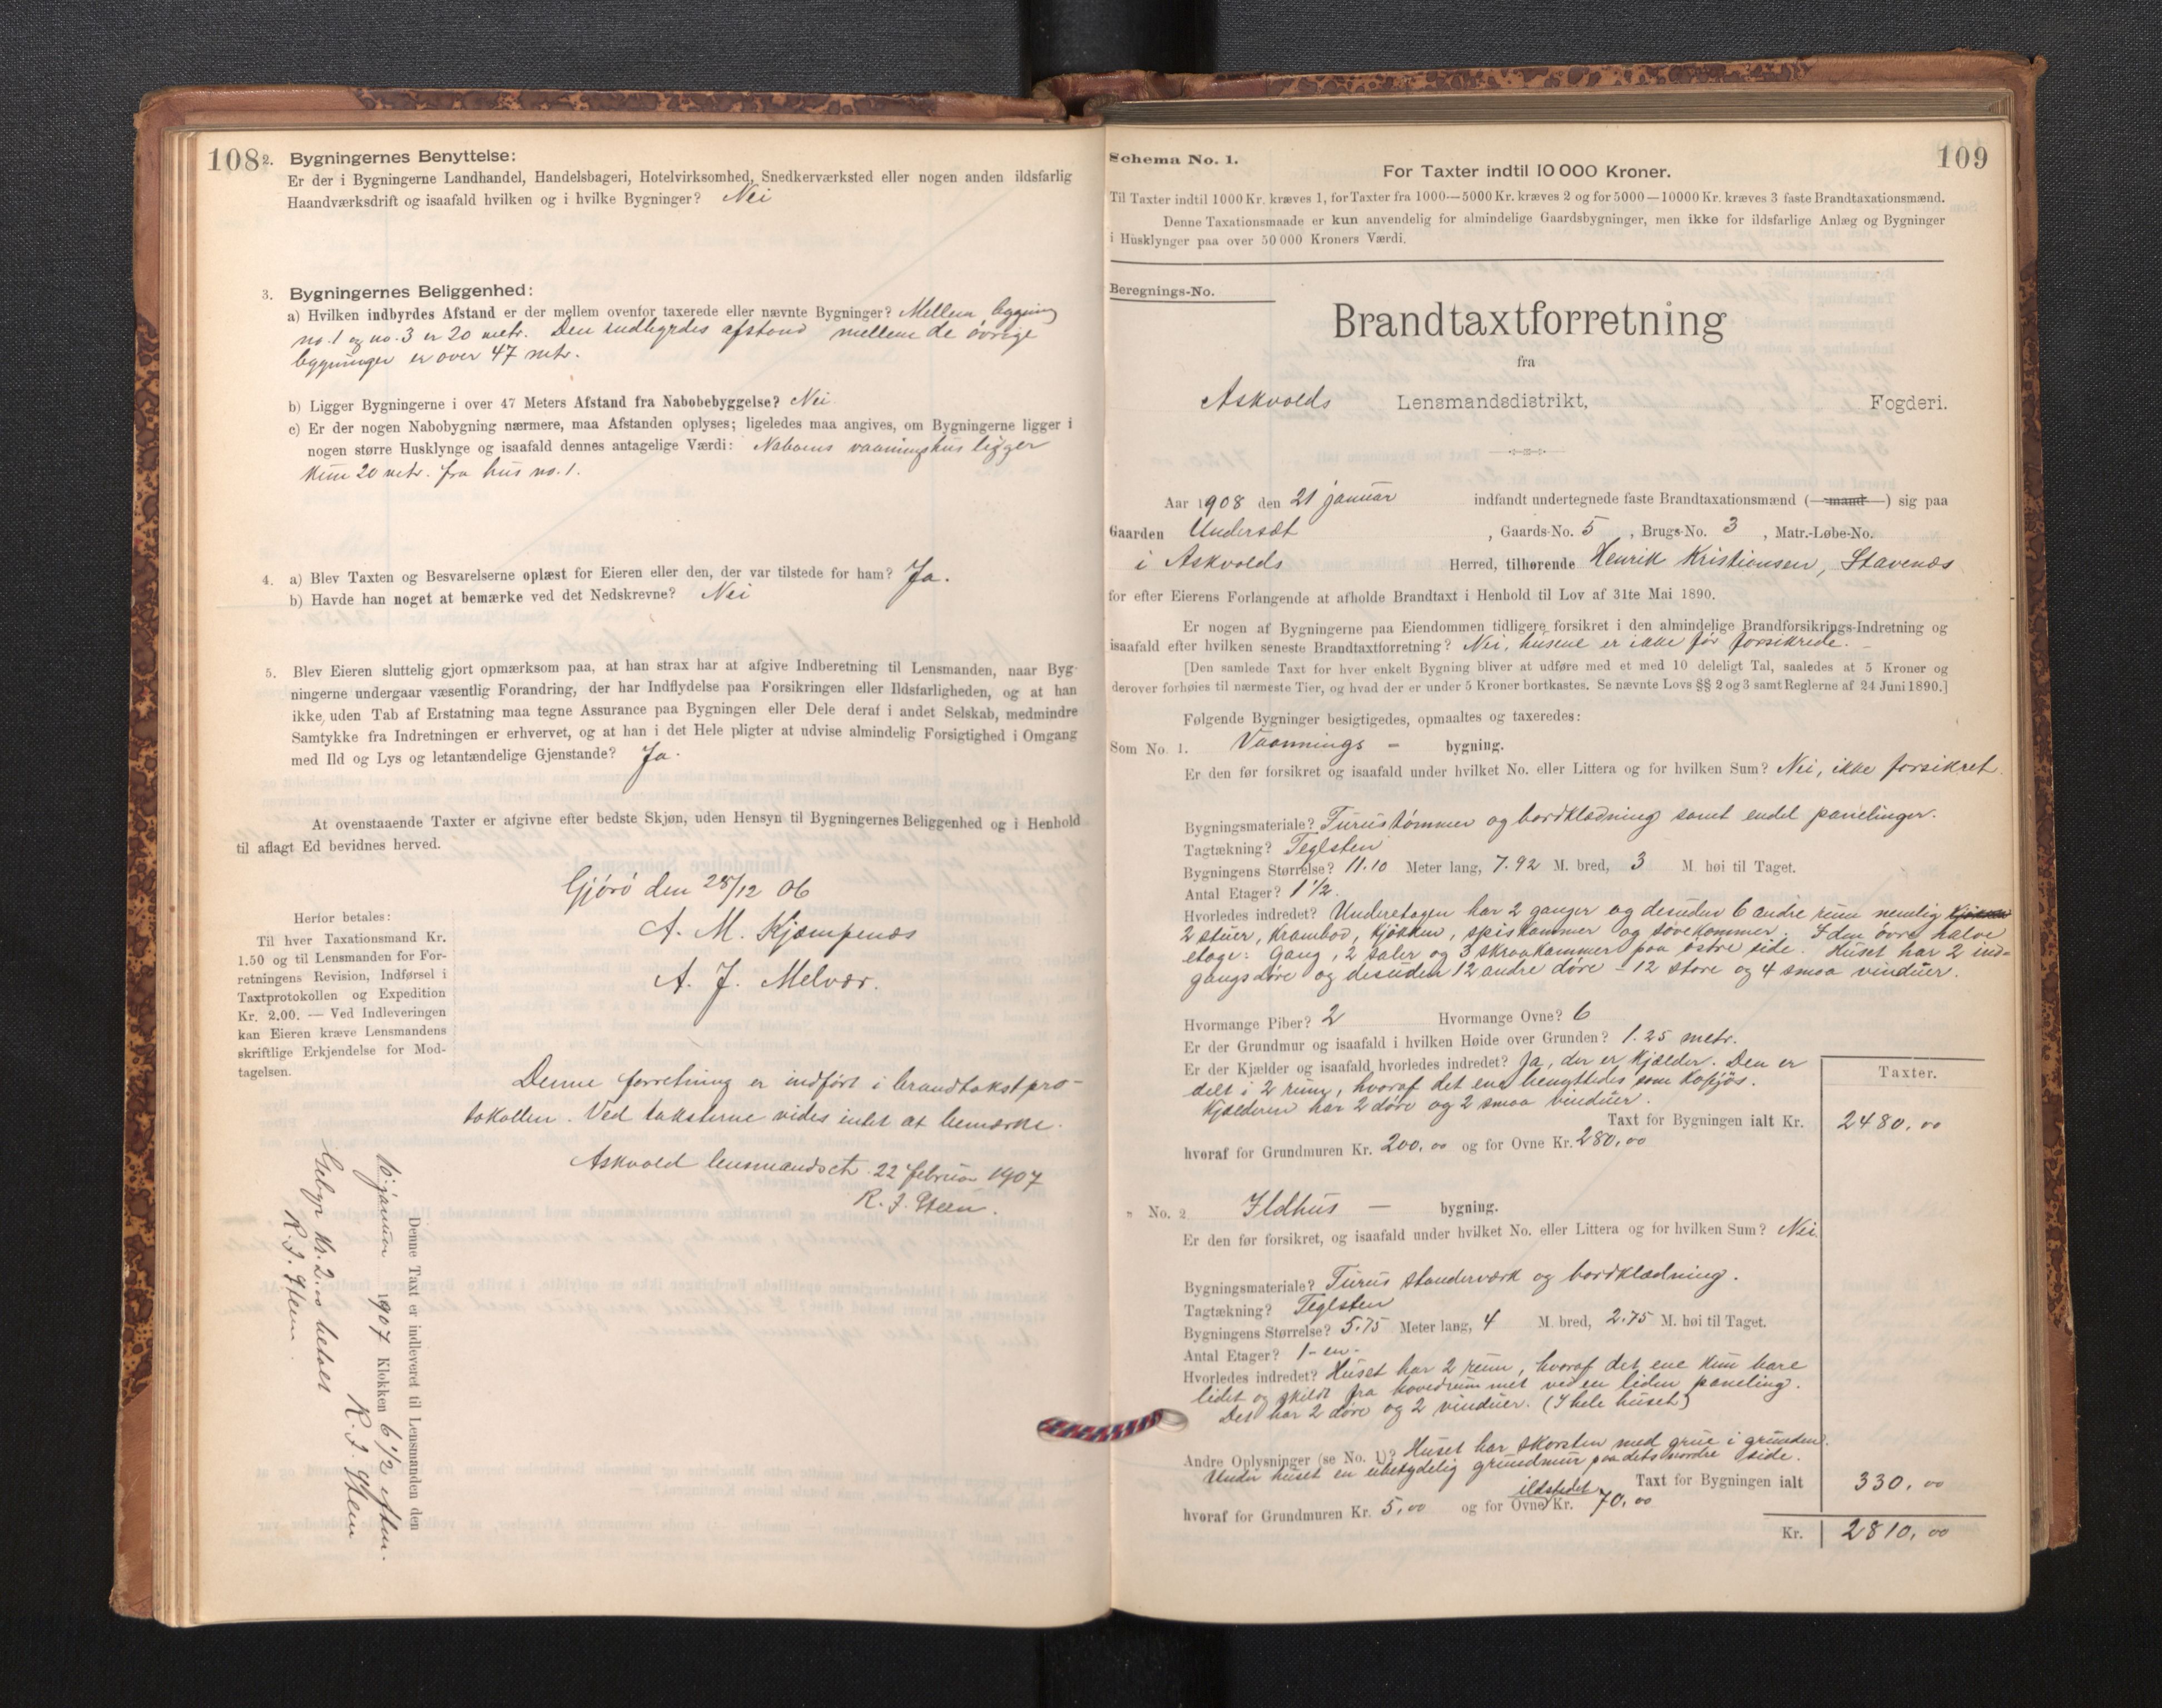 108
2. Bygningernes Benyttelse:
Er der i Bygningerne Landhandel, Handelsbageri, Hotelvirksomhed, Snedkerværksted eller nogen anden ildsfarlig
Haandværksdrift og isaafald hvilken og i hvilke Bygninger? Nei
3. Bygningernes Beliggenhed:
a) Hvilken indbyrdes Afstand er der mellem ovenfor taxerede eller nævnte Bygninger? Mellem bygning
no. 1 og no. 3 er 20 metr. Den indbyrdes afstand mellem de övrige
bygninger er over 47 mtr.
b) Ligger Bygningerne i over 47 Meters Afstand fra Nabobebyggelse? Nei
c) Er der nogen Nabobygning nærmere, maa Afstanden oplyses; ligeledes maa angives, om Bygningerne ligger i
nogen større Husklynge og isaafald dennes antagelige Værdi: Naboens vaaningshus ligger
kun 20 mtr. fra hus no. 1.
4. a) Blev Taxten og Besvarelserne oplæst for Eieren eller den, der var tilstede for ham? Ja.
b) Havde han noget at bemærke ved det Nedskrevne? Nei
5. Blev Eieren sluttelig gjort opmærksom paa, at han strax har at afgive Indberetning til Lensmanden, naar Byg-
ningerne undergaar væsentlig Forandring, der har Indflydelse paa Forsikringen eller Ildsfarligheden, og at han
ikke uden Tab af Erstatning maa tegne Assurance paa Bygningen eller Dele deraf i andet Selskab, medmindre
Samtykke fra Indretningen er erhvervet, og at han i det Hele pligter at udvise almindelig Forsigtighed i Omgang
med Ild og Lys og letantændelige Gjenstande? Ja.
At ovenstaaende Taxter er afgivne efter bedste Skjøn, uden Hensyn til Bygningernes Beliggenhed og i Henhold
til aflagt Ed bevidnes herved.
Gjörö den 28/12 06
A. M. Kjæmpenæs
A. J. Melvær.
Herfor betales:
Til hver Taxationsmand Kr.
1.50 og til Lensmanden for For-
retningens Revision, Indførsel i
Taxtprotokollen og Expedition
Kr. 2.00. — Ved Indleveringen
kan Eieren kræve Lensmandens
skriftlige Erkjendelse for Mod-
tagelsen.
Denne forretning er indfört i brandtakstpro-
tokollen. Ved taksterne vides intet at bemærke.
Askvold lensmandsct. 22 februar 1907
R. J. Steen.
Denne Taxt er indleveret til Lensmanden den
16 januar 1907 Klokken 6 1/2 efterm.
R. J. Steen
Gebyr kr. 2.00 betalt
R. J. Steen
109
Schema No. 1.
For Taxter indtil 10 000 Kroner.
Til Taxter indtil 1000 Kr. kræves 1, for Taxter fra 1000—5000 Kr. kræves 2 og for 5000—10000 Kr. kræves 3 faste Brandtaxationsmænd.
Denne Taxationsmaade er kun anvendelig for almindelige Gaardsbygninger, men ikke for ildsfarlige Anlæg og Bygninger
i Husklynger paa over 50 000 Kroners Værdi.
Beregnings-No.
Brandtaxtforretning
fra
Askvolds Lensmandsdistrikt, Fogderi.
Aar 1908 den 21 januar indfandt undertegnede faste Brandtaxationsmænd (—mand—) sig paa
Gaarden Undersæt, Gaards-No. 5, Brugs-No. 3, Matr.-Løbe-No.
i Askvolds Herred, tilhørende Henrik Kristiensen, Stavenæs
for efter Eierens Forlangende at afholde Brandtaxt i Henhold til Lov af 31te Mai 1890.
Er nogen af Bygningerne paa Eiendommen tidligere forsikret i den almindelige Brandforsikrings-Indretning og
isaafald efter hvilken seneste Brandtaxtforretning? Nei, husene er ikke för forsikrede.
[Den samlede Taxt for hver enkelt Bygning bliver at udføre med et med 10 deleligt Tal, saaledes at 5 Kroner og
derover forhøies til nærmeste Tier, og hvad der er under 5 Kroner bortkastes. Se nævnte Lovs §§ 2 og 3 samt Reglerne af 24 Juni 1890.]
Følgende Bygninger besigtigedes, opmaaltes og taxeredes:
Som No. 1. Vaanings - bygning.
Er den før forsikret og isaafald under hvilket No. eller Littera og for hvilken Sum? Nei, ikke forsikret.
Bygningsmateriale? Furustömmer og bordklædning samt endel panelinger.
Tagtækning? Teglsten
Bygningens Størrelse? 11.10 Meter lang, 7.92 M. bred, 3 M. høi til Taget.
Antal Etager? 1 1/2.
Hvorledes indredet? Underetagen har 2 ganger og desuden 6 andre rum nemlig kjökken
2 stuer, krambod, kjökken, spiskammer og sovekammer. I den övre halve
etage: Gang, 2 saler og 3 skraakammer paa östre side. Huset har 2 ind=
gangsdöre og desuden 12 andre döre - 12 store og 4 smaa vinduer.
Hvormange Piber? 2 Hvormange Ovne? 6
Er der Grundmur og isaafald i hvilken Høide over Grunden? 1.25 metr.
Er der Kjælder og isaafald hvorledes indredet? Ja, der er kjælder. Den er
delt i 2 rum, hvoraf det ene benyttedes som
Kjælderen har 2 döre og 2 smaa vinduer.
Taxter.
Taxt for Bygningen ialt Kr. 2480,00
hvoraf for Grundmuren Kr. 200,00 og for Ovne Kr. 280,00
" No. 2 Ildhus — bygning.
Er den før forsikret, og isaafald under hvilket No. eller Littera og for hvilken Sum? Nei
Bygningsmateriale? Furus standerværk og bordklædning.
Tagtækning? Teglsten
Bygningens Størrelse? 5.75 Meter lang, 4 M. bred, 2.75 M. høi til Taget.
Antal Etager? 1-en-
Hvorledes indredet? Huset har 2 rum, hvoraf det ene kun bare
lidet og skildt fra hovedrummet ved en liden paneling.
Det har 2 döre og 2 vinduer. (I hele huset)
Andre Oplysninger (se No. 1)? Huset har skorsten med grue i grunden.
Under huset en ubetydelig grundmur paa dets nordre side.
Taxt for Bygningen ialt 330,00
ildstedet
hvoraf for Grundmuren Kr. 5,00 og for Ovne Kr. 70,00
Kr. 2810,00